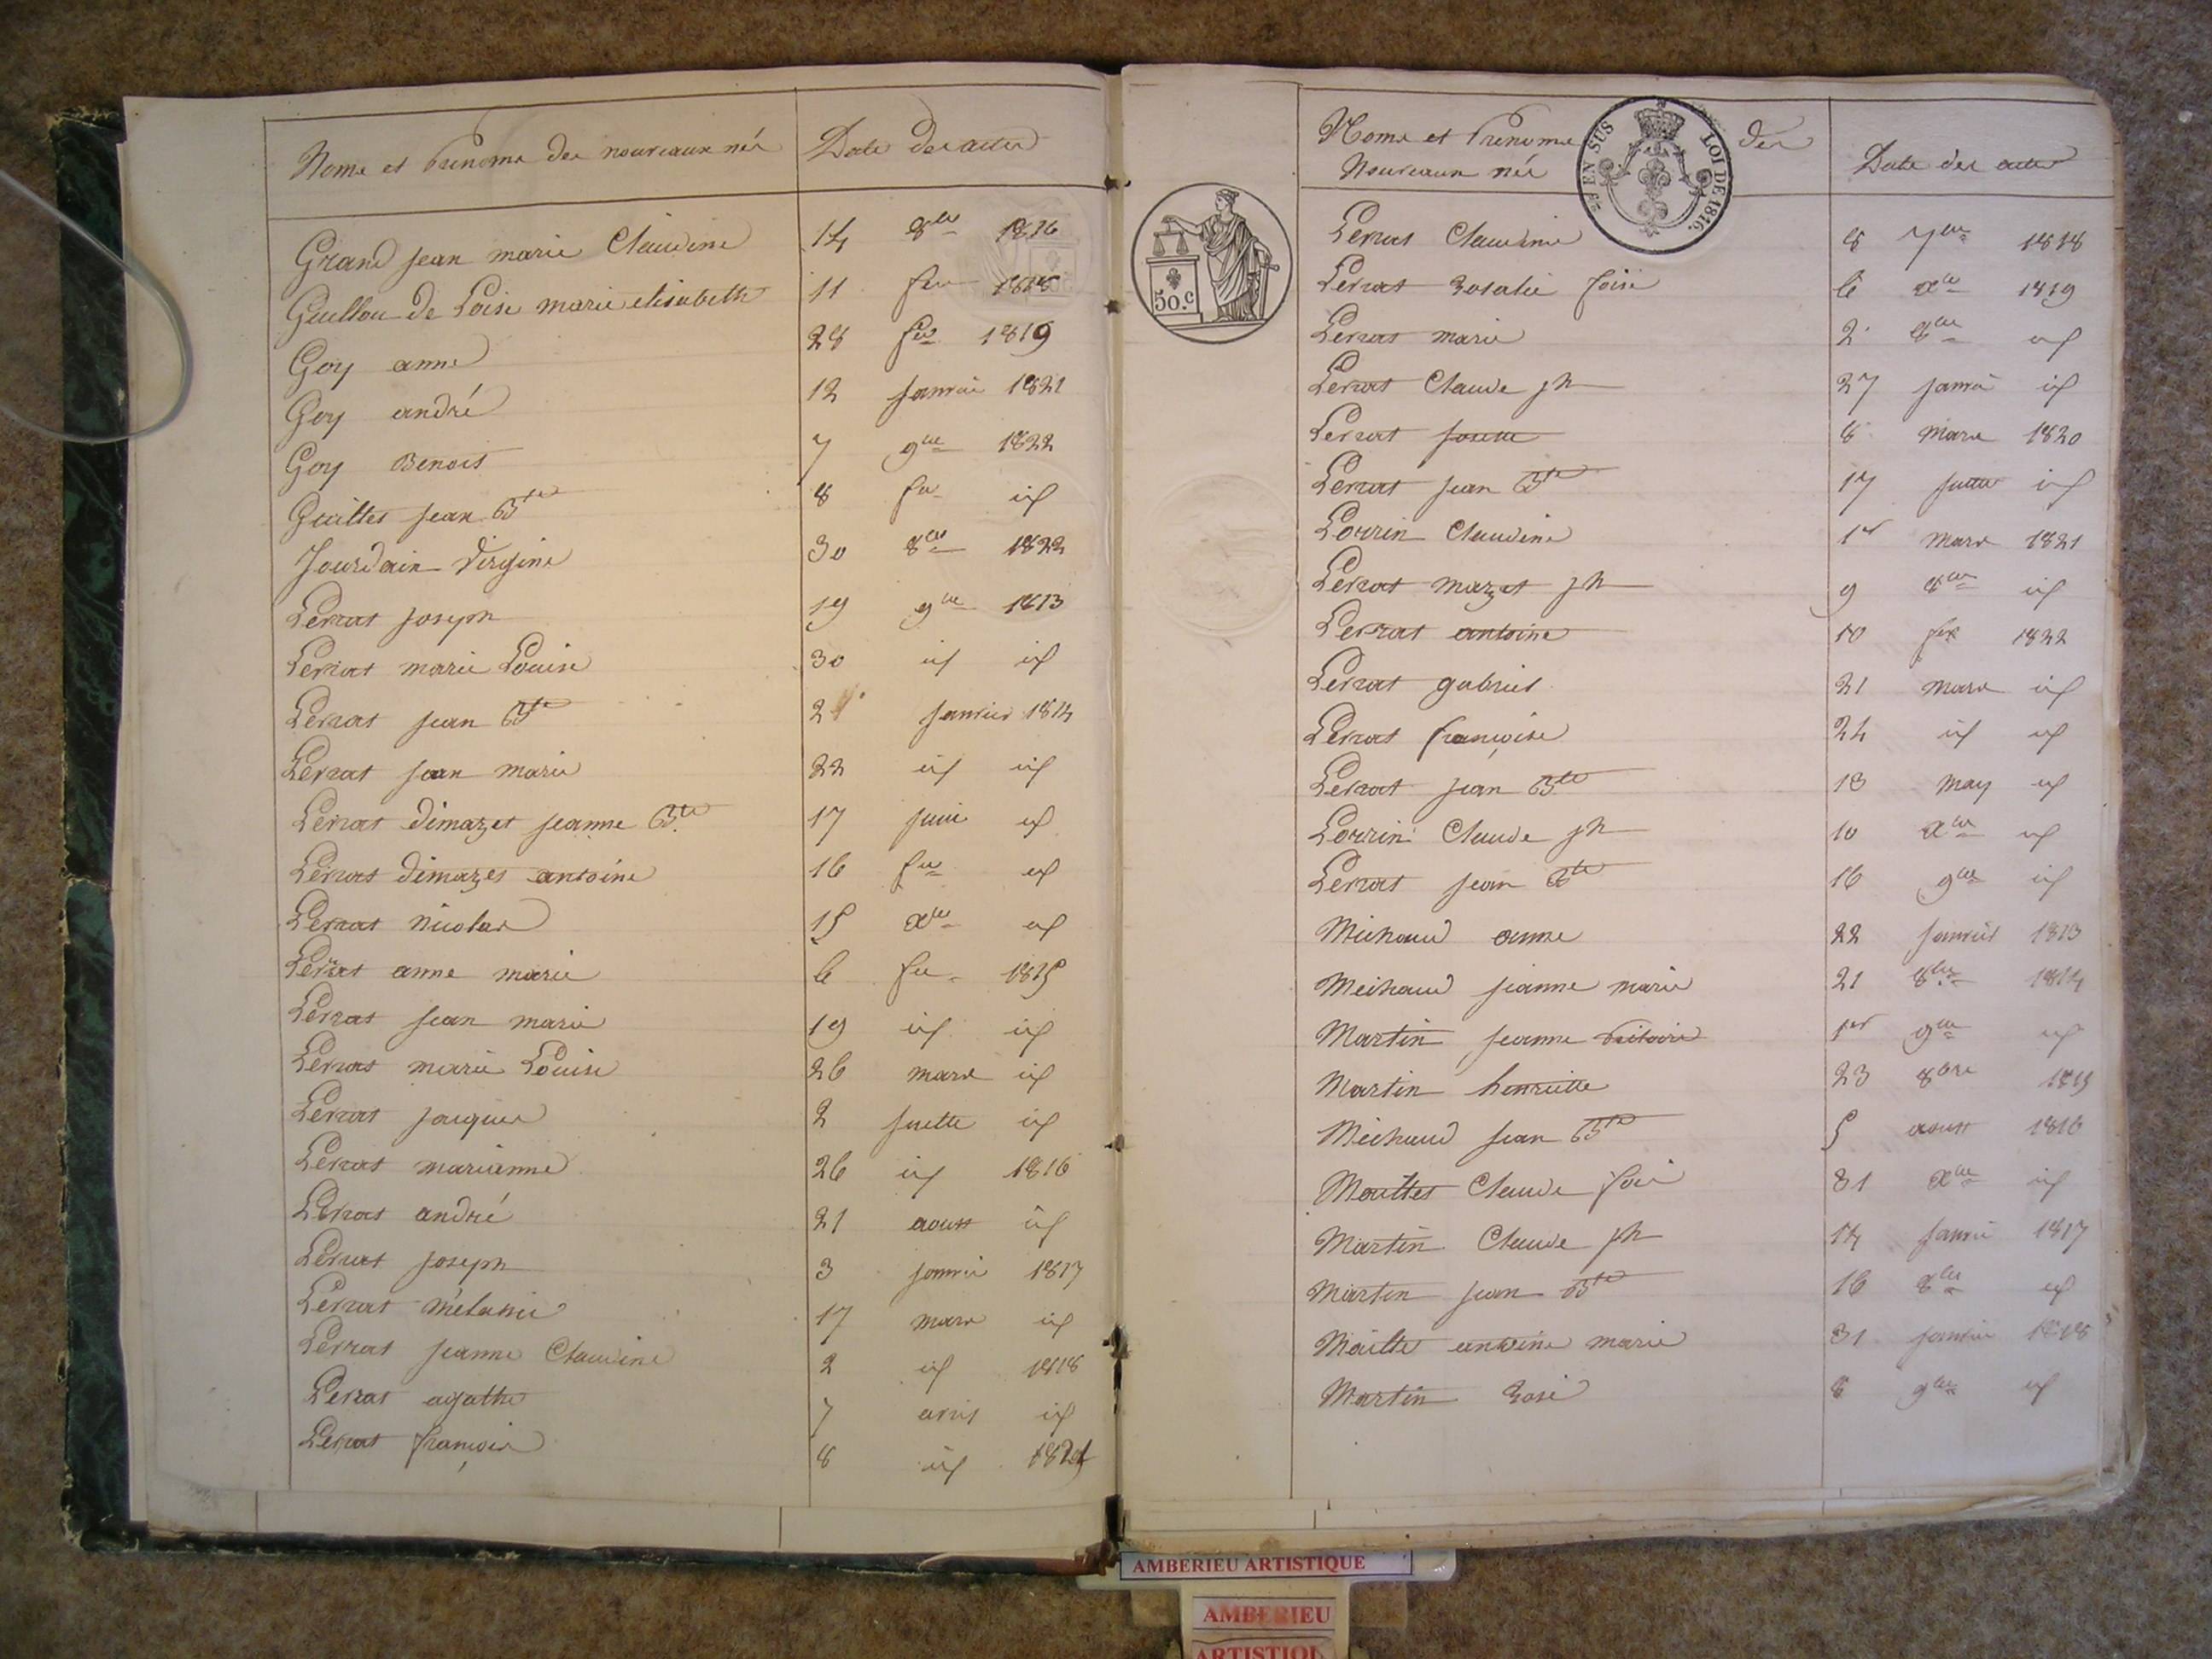 Noms et Prenoms des nouveaux nés Date des actes
Grand jean marie Claudine 14 8bre 1816
Guillou de Loise marie elisabeth 11 fer 1818
Goy anne 28 fer 1819
Goy andré 12 janvier 1821
Goy Benoit 7 9bre 1822
jean Bte 8 fer id
Jourdain Virgine 30 8bre 1822
Lerrat joseph 19 9bre 1813
Lerrat marie Louise 30 id id
Lerrat jean Bte 2 janvier 1814
Lerrat jean marie 22 id id
Lerrat dimazet jeanne Bte 17 juin id
Lerrat dimazet antoine 16 fer id
Lerrat nicolas 15 Xbre id
Lerrat anne marie 6 fer 1815
Lerrat jean marie 19 id id
Lerrat marie Louise 26 mars id
Lerrat jacques 2 juillet id
Lerrat marianne 26 id 1816
Lerrat andré 21 aoust id
Lerrat joseph 3 janvier 1817
Lerrat mélanie 17 mars id
Lerrat jeanne Claudine 2 id 1818
Lerrat agathe 7 avril id
Lerrat françois 8 id
Noms et Prenoms des
Nouveaux nés Date des actes
EN SUS LOI DE 1816.
50.c
Lerrat Claudine 8 7bre 1818
Lerrat Rosalie foise 6 Xbre 1819
Lerrat marie 2 8bre id
Lerrat Claude jh 27 janvier id
Lerrat 8 mars 1820
Lerrat jean Bte 17 juillet id
Lorrin Claudine 1er mars 1821
Lerrat mazet jh 9 8bre id
Lerrat antoine 10 fer 1822
Lerrat gabriel 21 mars id
Lerrat françoise 24 id id
Lerrat jean Bte 13 may id
Lorrin Claude jh 10 Xbre id
Lerrat jean Bte 16 9bre id
Michaud anne 22 janvier 1813
Michaud jeanne marie 21 8bre 1814
Martin jeanne 1er 9bre id
Martin henriette 23 8bre 1815
Michaud jean Bte 5 aoust 1816
Claude 31 Xbre id
Martin Claude jh 14 janvier 1817
Martin jean Bte 16 8bre id
antoine marie 31 janvier 1818
Martin Rose 8 9bre id
AMBERIEU ARTISTIQUE
AMBERIEU